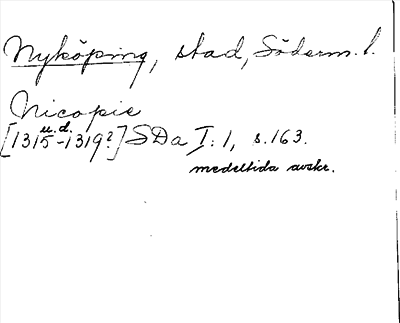 Nyköping, stad, Söderm. l.
Nicopie
u.d.
[1315-1319?] SDa I:1, s.163.
medeltida avskr.